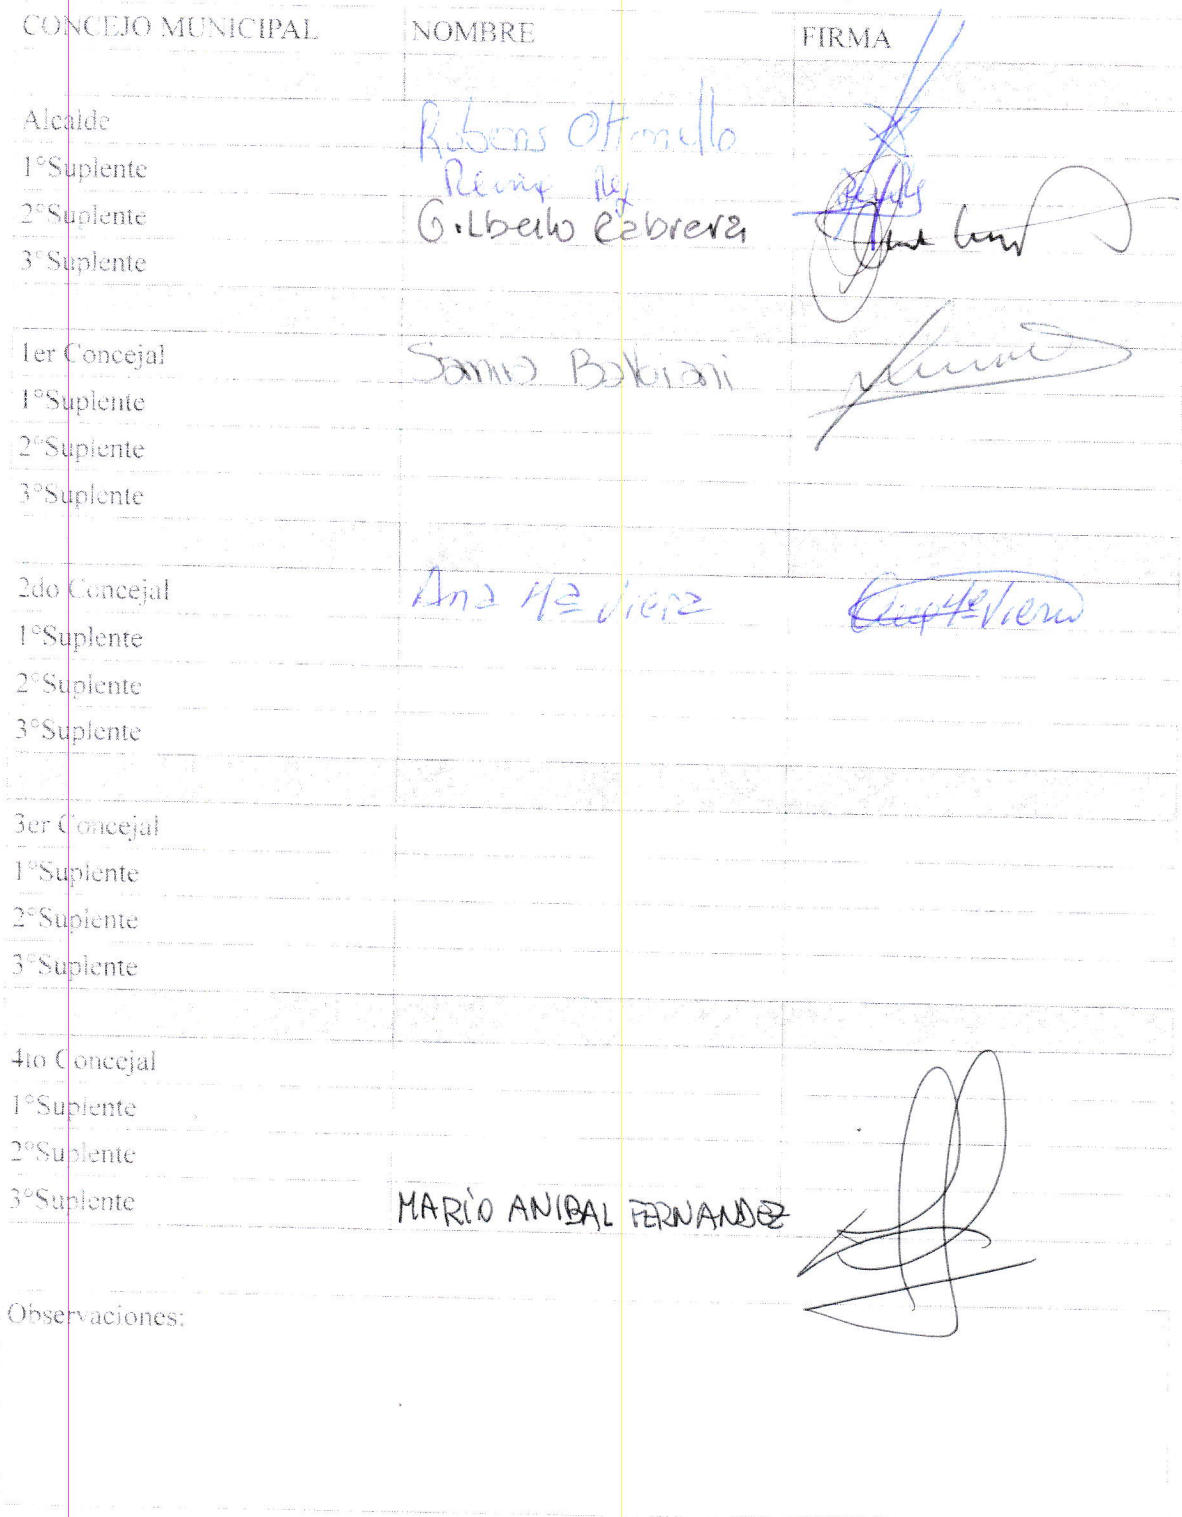 CONCEJO MUNICIPAL NOMBRE FIRMA
Alcalde Rubens Ottonello
1°Suplente Rey
2°Suplente Gilberto Cabrera
3°Suplente
1er Concejal Balbiani
1°Suplente
2°Suplente
3°Suplente
2do Concejal Ana Mª Viera Ana Mª Viera
1°Suplente
2°Suplente
3°Suplente
3er Concejal
1°Suplente
2°Suplente
3°Suplente
4to Concejal
1°Suplente
2°Suplente
3°Suplente MARÍO ANIBAL FERNANDEZ
Observaciones: